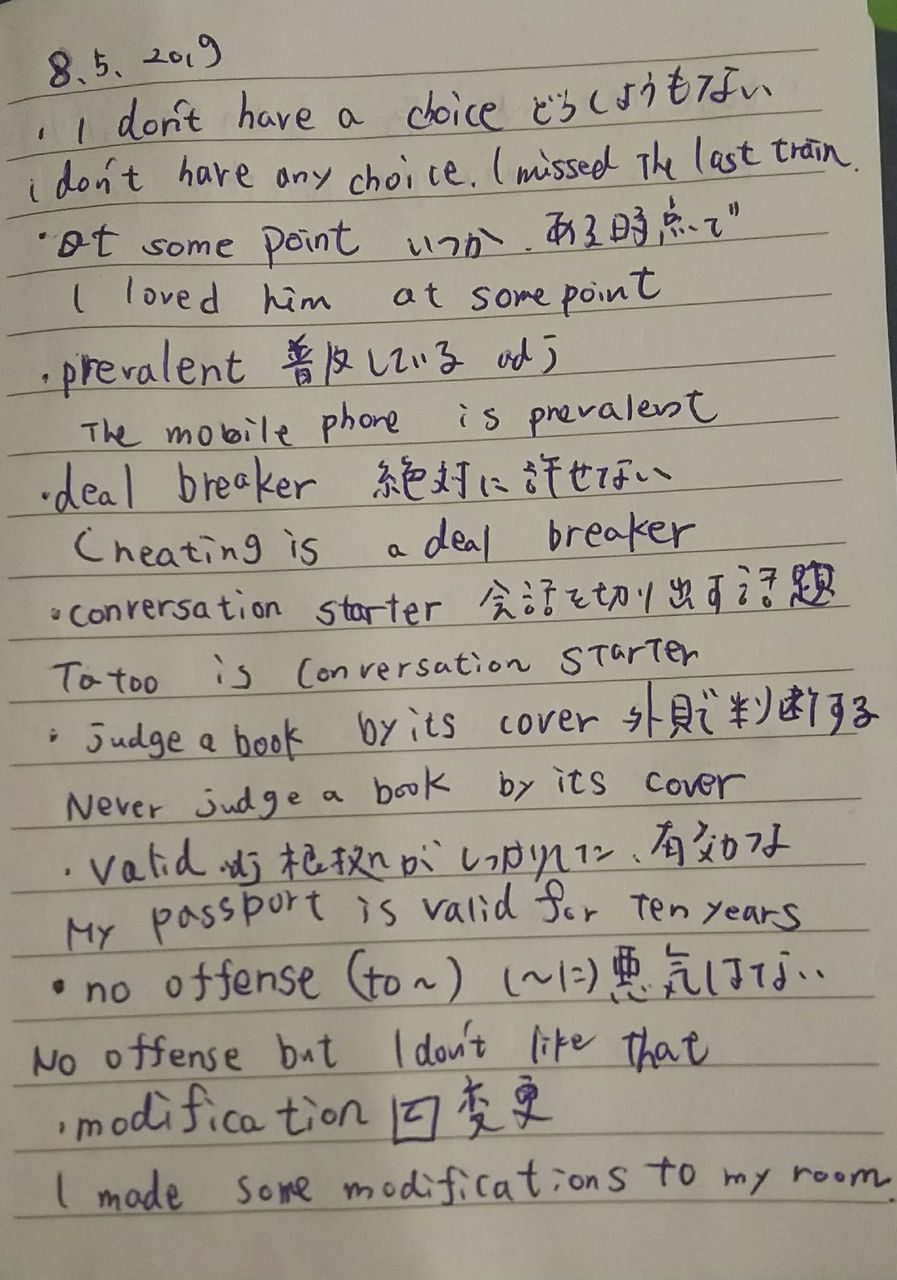 8.5. 2019
・I don't have a choice どうしようもない
i don't have any choice. I missed The last train.
・at some point いつか、ある時点で
I loved him at some point
・prevalent 普及している adj
The mobile phone is prevalent
・deal breaker 絶対に許せない
Cheating is a deal breaker
・conversation starter 会話を切り出す話題
Tatoo is conversation starter
・judge a book by its cover 外見で判断する
Never judge a book by its cover
・valid adj がしっかりした、有効な
My passport is valid for Ten years
・no offense (to~) (~に)悪気はない
No offense but I don't like that
・modification 変更
I made some modifications to my room.